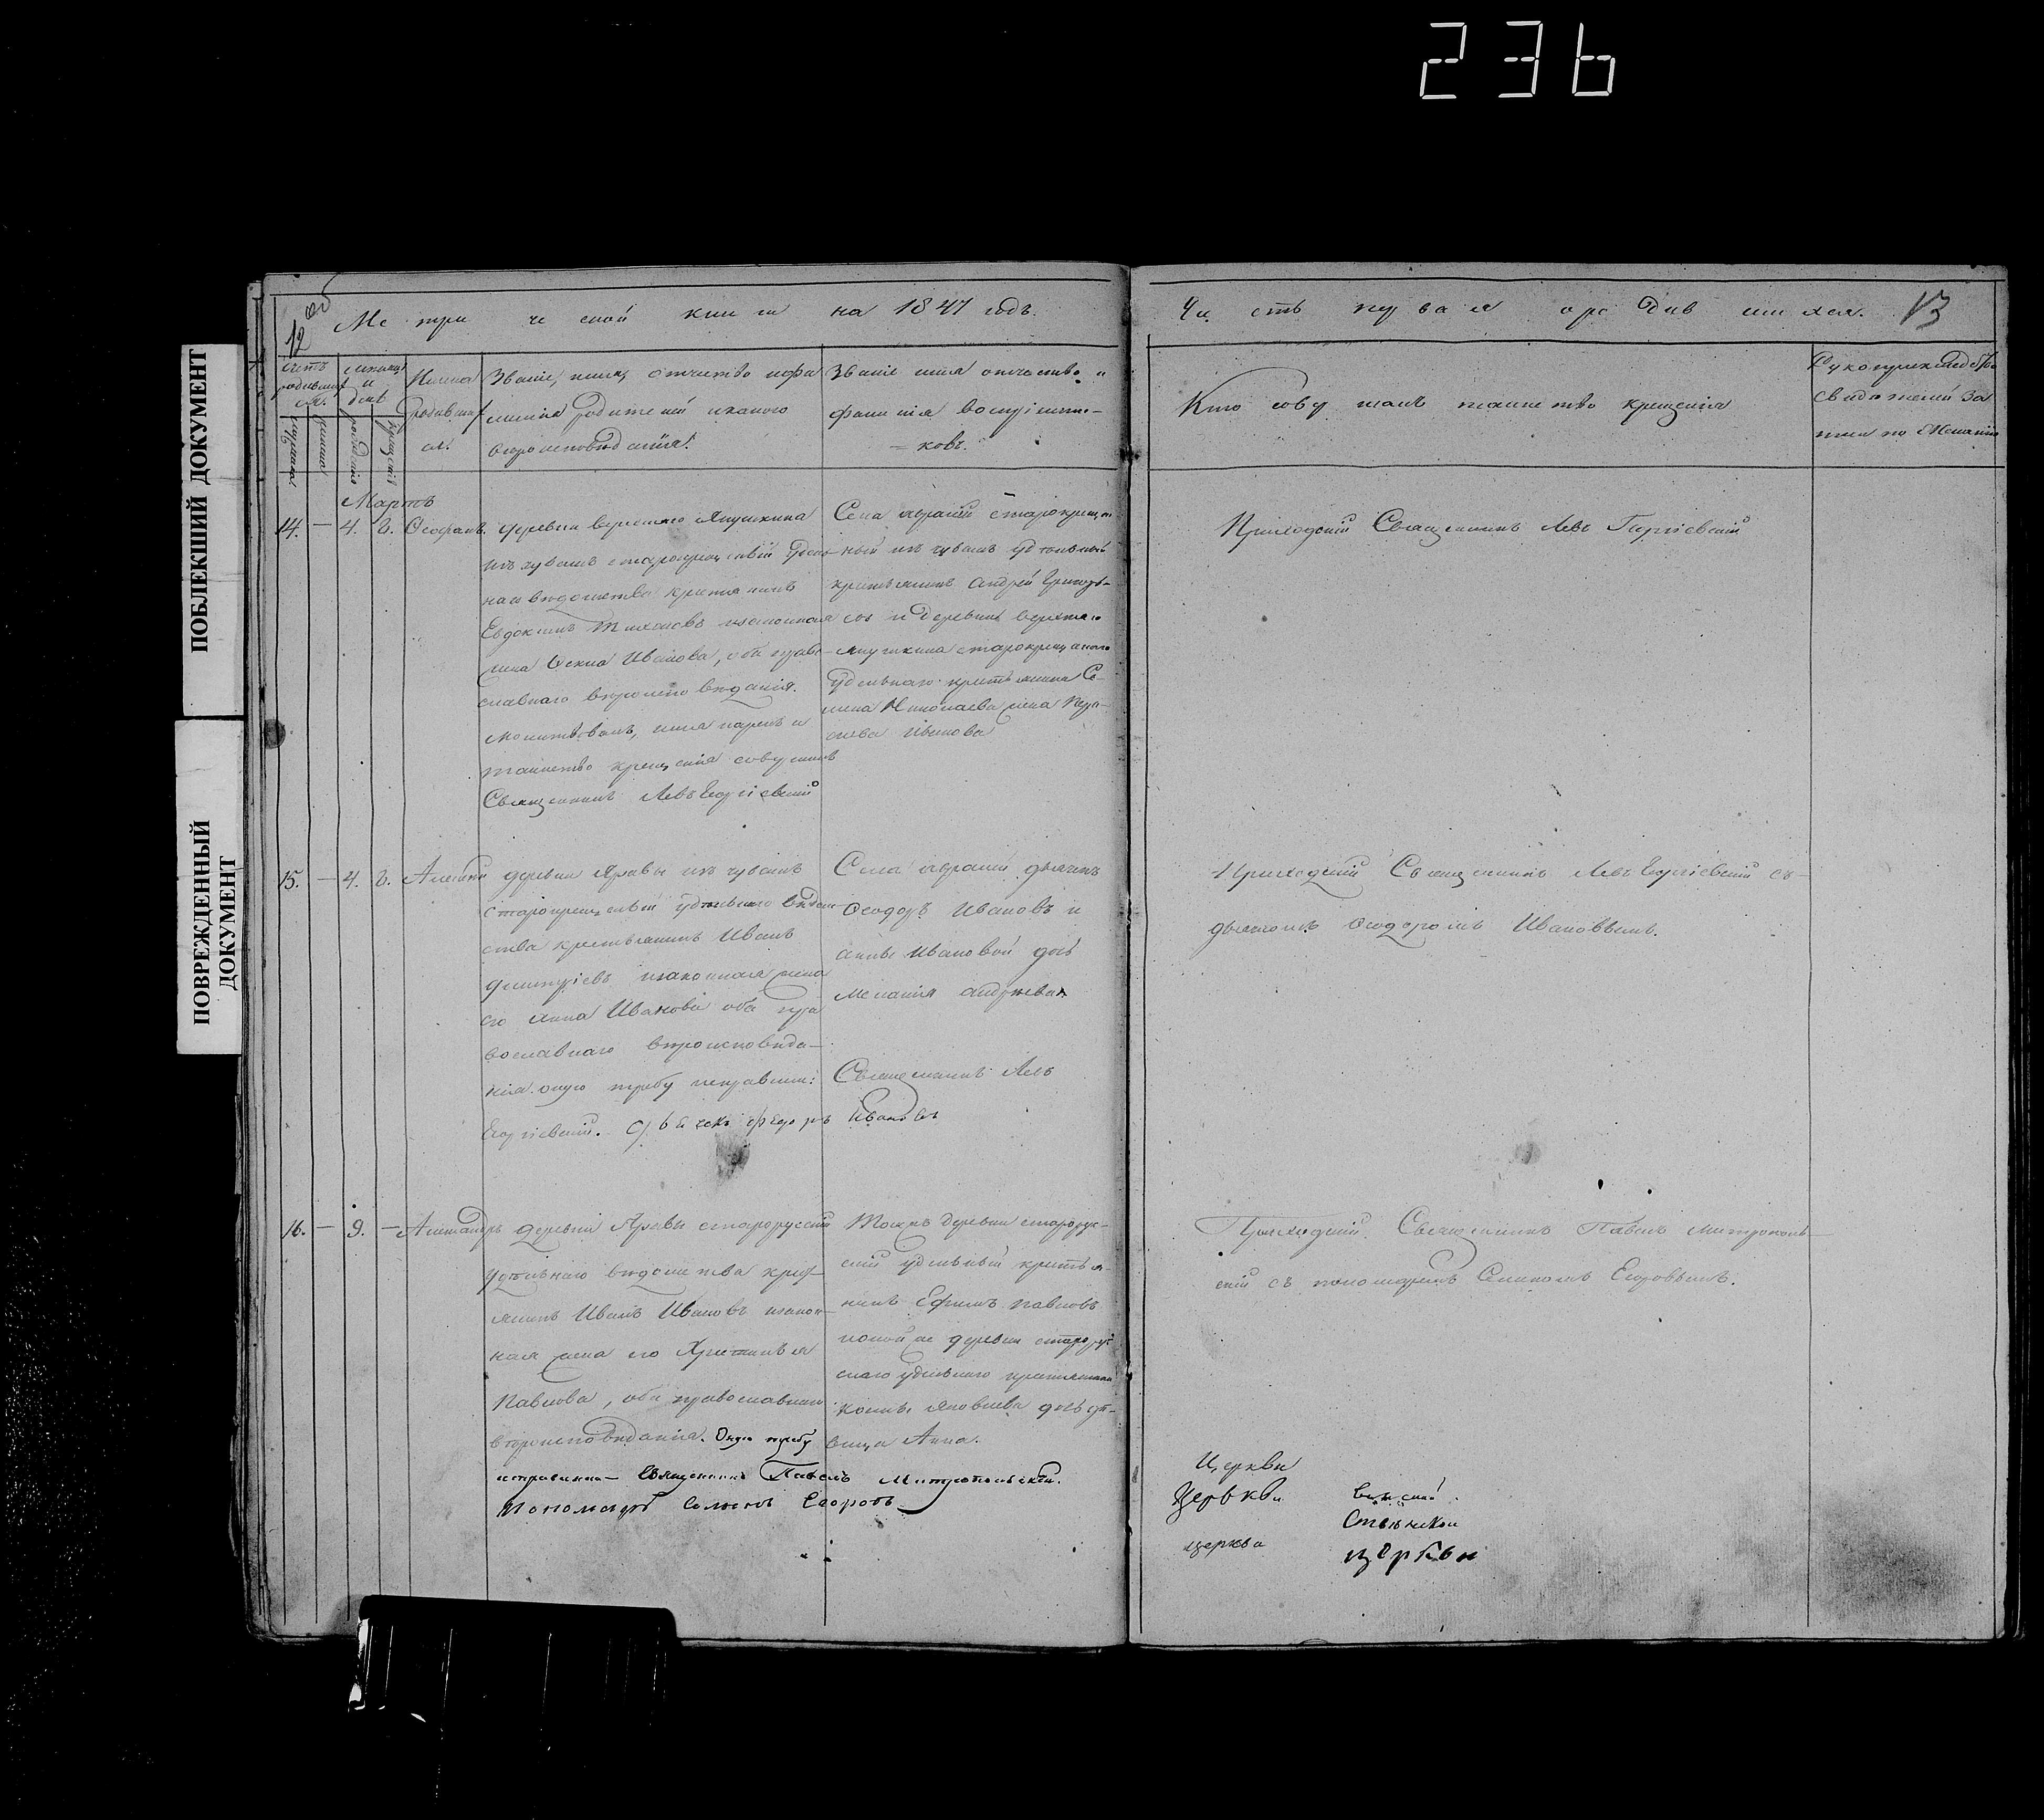 236
ПОБЛЕКШИЙ ДОКУМЕНТ
ПОВРЕЖДЕННЫЙ
ДОКУМЕНТ
12 об
Метрической книги на 1847 годъ.
Часть первая о родившихся. 13
Счетъ родившихся.
мужеска
женска
Месяцъ и день
рождения
крещенія
Имена родившихся.
Званіе, имя, отчество и фамилія родителей и какого вѣроисповѣданія.
Званіе имя отчество и фамилія воспріемниковъ.
Кто совершалъ таинство крещенія
Рукоприкладство свидетелей записи по желанію
Мартъ
14. — 4. 6. Ѳеофанъ.
деревни верхняго Япушкина
изъ чувашъ старокрещеный удѣльнаго вѣдомства крестьянинъ
Евдокимъ Тихоновъ и законная
жена Иванова, оба православнаго вѣроисповѣданія.
Молитвовалъ, имя нарекъ и
таинство крещенія совершилъ
Священникъ Левъ Георгіевскій
Села старокрещеный изъ чувашъ удѣльный
крестьянинъ Андрей Григорьевъ и деревни верхняго
Япушкина старокрещенаго
удѣльнаго крестьянина
Николаева жена
Иванова
Приходскій Священникъ Левъ Георгіевскій
15. — 4. 6. Алексий
деревни Яравы изъ чувашъ
старокрещеный удѣльнаго вѣдомства крестьянинъ Иванъ
Димитріевъ и законная жена
его Анна Иванова оба православнаго вѣроисповѣданія. оную требу исправили: Священникъ Левъ
Георгіевскій. Дьячекъ Федоръ Ивановъ
Села дьячекъ
Ѳеодоръ Ивановъ и
Анны Ивановой дочь
Меланія Андреева
Приходскій Священникъ Левъ Георгіевскій съ
дьячкомъ Ѳеодоромъ Ивановымъ.
16. — 9. — Александръ
деревни Яравы старорусскій
удѣльнаго вѣдомства крестьянинъ Иванъ Ивановъ и законная жена его
Павлова, оба православнаго
вѣроисповѣданія. Оную требу
исправили — Священникъ Павелъ Митропольскій.
Пономарь Семенъ Егоровъ
Тоя же деревни старорусскій удѣльный крестьянинъ Ефимъ Павловъ
и той же деревни старорусскаго удѣльнаго крестьянина
Яковлева дочь дѣвица Анна.
Приходскій Священникъ Павелъ Митропольскій съ пономаремъ Семеномъ Егоровымъ.
Церкви
Церкви
церкви
церкви